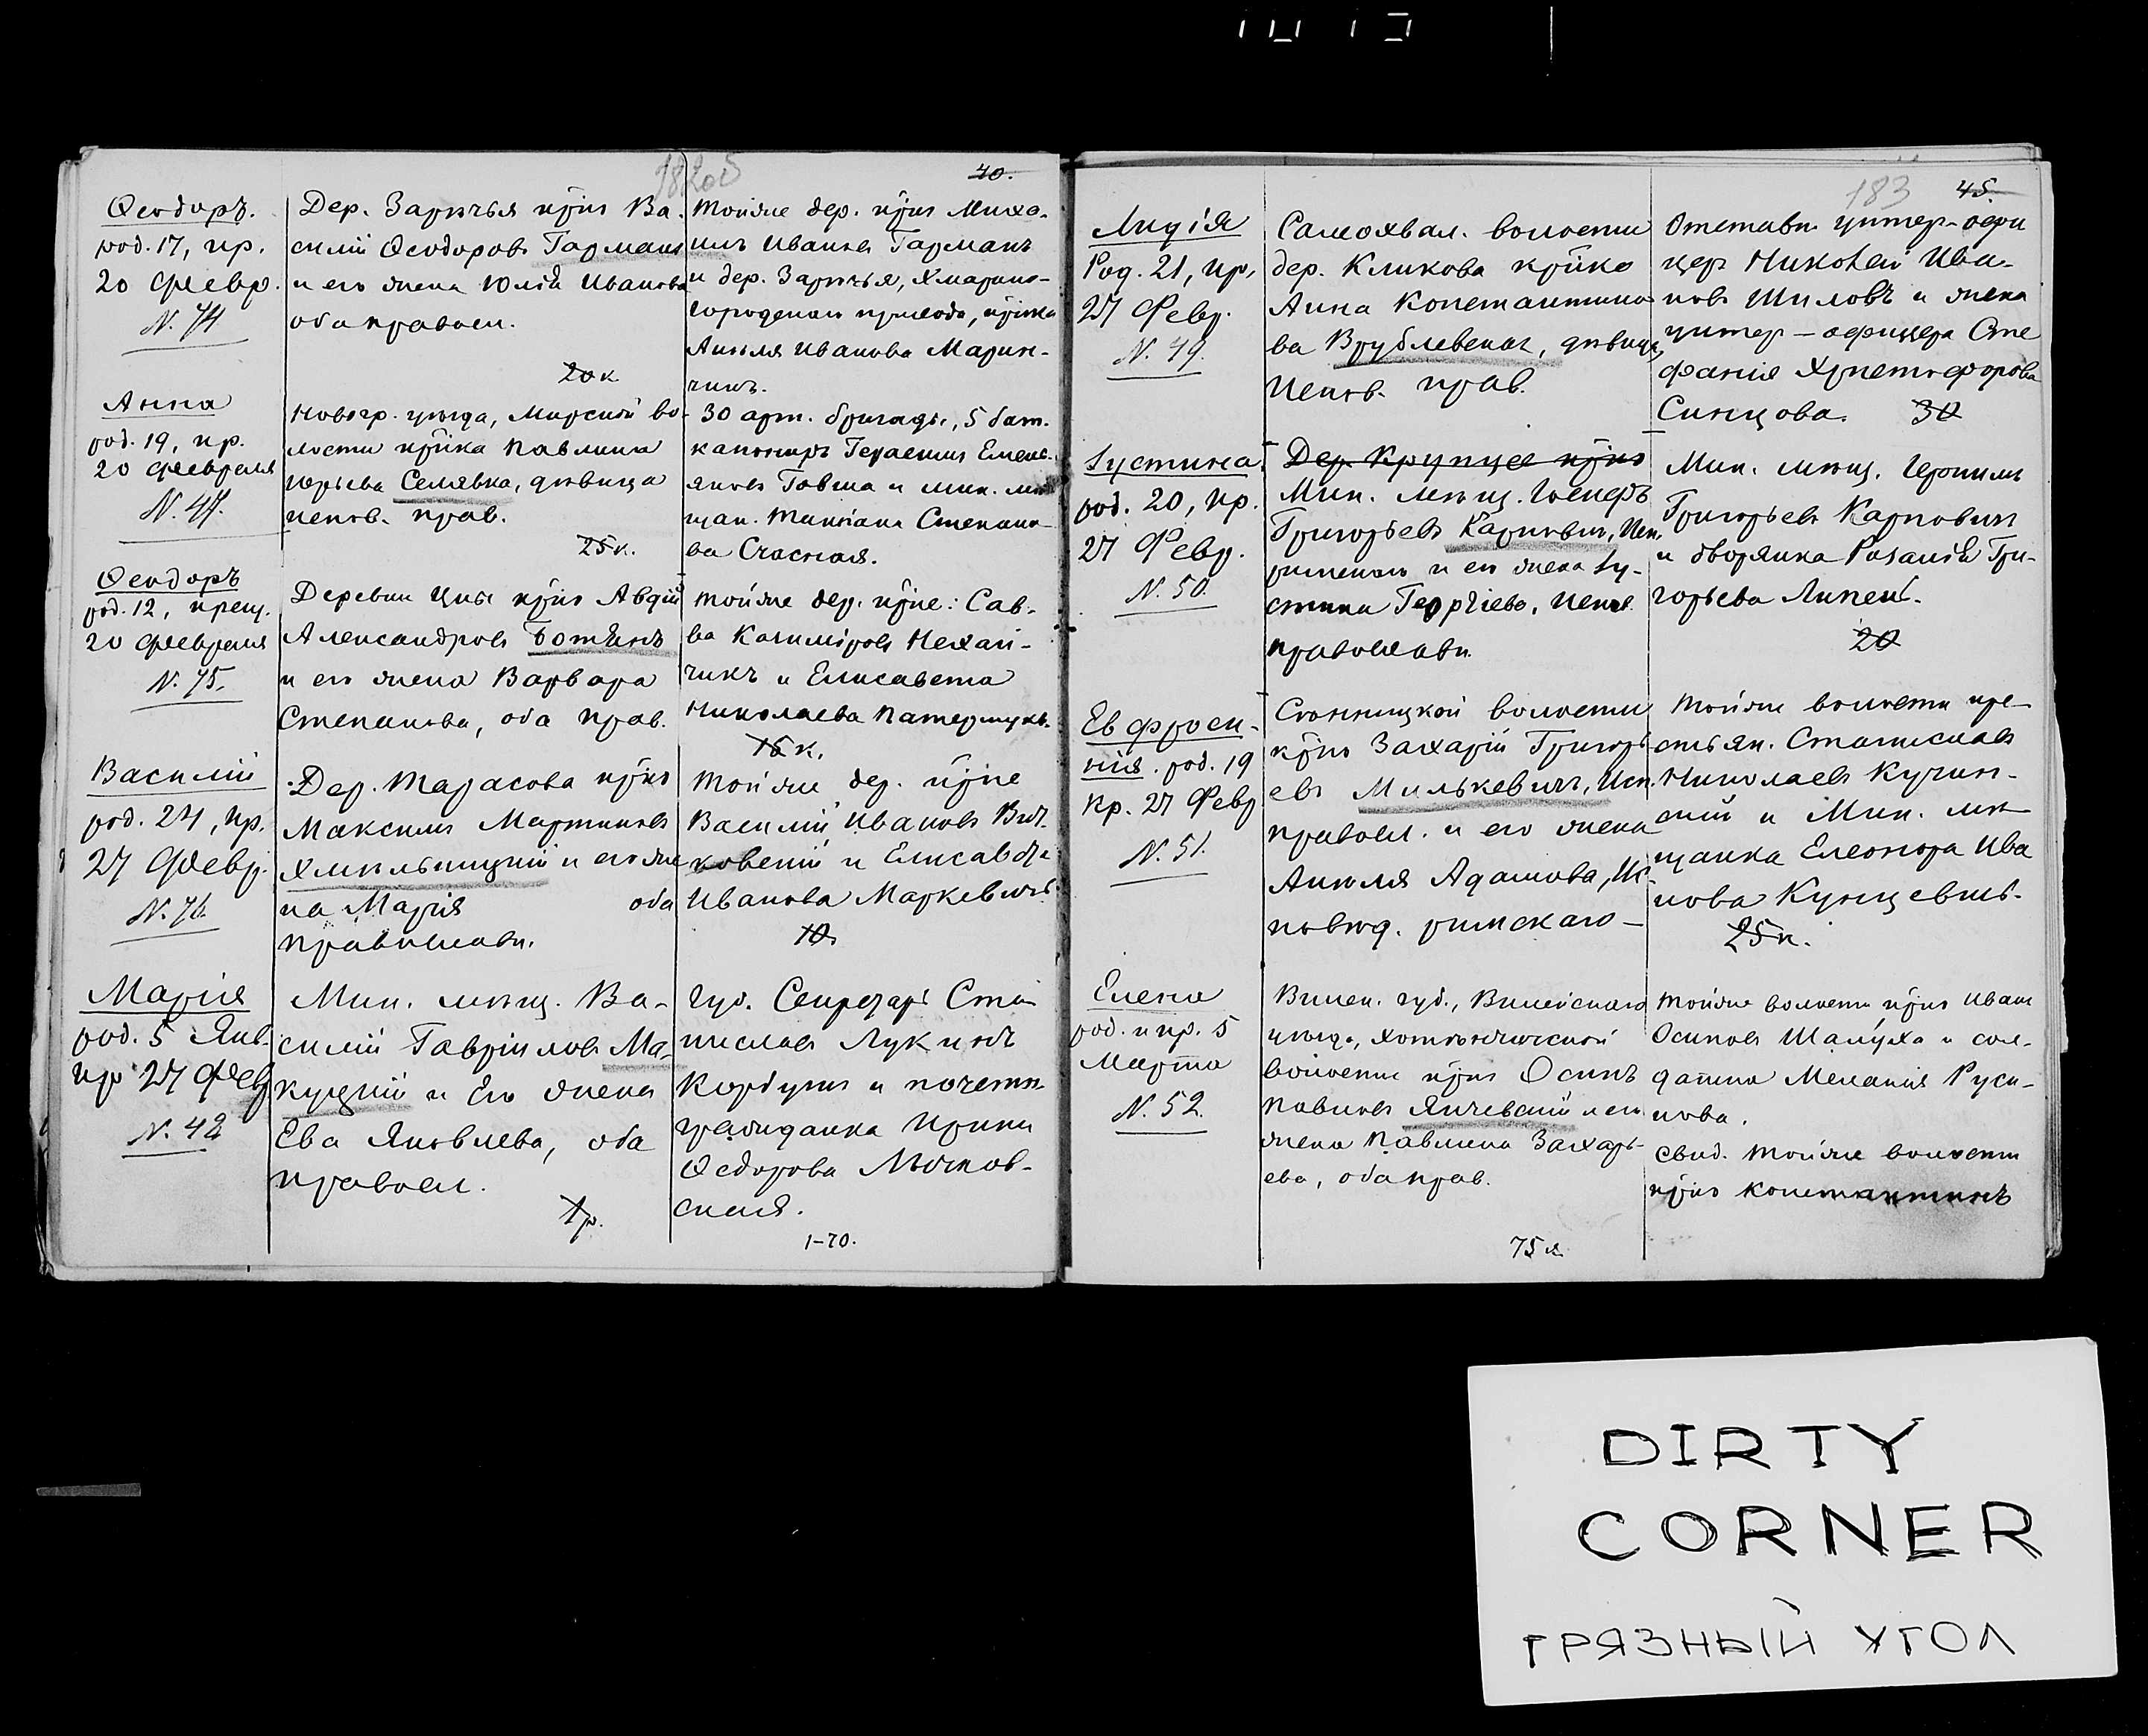 40.
Ѳеодоръ.
род. 17, кр.
20 Февр.
N. 74
Дер. Зарѣчья
силій Ѳеодоровъ Гарманъ
и его жена Юлія Иванова
оба правосл.
20к
Тойже дер. Миха-
илъ Ивановъ Гарманъ
и дер. Зарѣчья, Хмарино-
городскаго прихода,
Анѣля Иванова Марин-
чикъ.
Анна
род. 19, кр.
20 Февраля
N. 47.
Новогр. уѣзда, Мирской во-
лости Павлина
Юрьева Селявка, дѣвица
испов. прав.
25к.
30 арт. бригады, 5 бат.
Герасимъ Емель-
яновъ Говша и мин. мѣ
щан. Степано-
ва Счасная.
Ѳеодоръ
род. 12, крещ.
20 Февраля
N. 75.
Деревни Цны Авдій
Александровъ Ботянъ
и его жена Варвара
Степанова, оба прав.
Тойже дер. Сав-
ва Казиміровъ Нехай-
чикъ и Елисавета
Николаева
15к.
Василій
род. 24, кр.
27 Февр.
N. 76.
Дер. Тарасова
Максимъ Мартиновъ
Хмѣльницкій и его же
на Марія оба
православн.
Тойже дер.
Василій Ивановъ Вит-
ковскій и Елисавета
Иванова Маркевичъ
10.
Марія
род. 5 Янв.
кр 27 Фев
N. 42
Мин. мѣщ. Ва-
силій Гавріиловъ Ма-
куцкій и его жена
Ева Яковлева, оба
правосл.
1р.
Губ. Секретарь Ста
ниславъ Лукинъ
Корбутъ и почетн.
гражданка Ирина
Ѳедорова
ская.
1-70.
183
45.
Лидія
Род. 21, кр,
27 Февр.
N. 49.
Самохвал. волости
дер. Кликова
Анна Константино
ва Врублевская, дѣвица,
испов. прав.
Отставн. унтер-офи
церъ Николай Ива-
новъ Шиловъ и жена
унтер-офицера Сте
фанія Христофорова
Синцова. 30
Іустина
род. 20, кр.
27 Февр.
N. 50.
Дер. Крупце
Мин. мѣщ. Іосифъ
Григорьевъ Карповичъ, исп.
римскаго и его жена Іу-
стина Георгіева, испов
православн.
Мин. мѣщ.
Григорьевъ Карповичъ
и дворянка Розалія Гри-
горьева
20
Евфроси-
нія. род. 19
Кр. 27 Февр
N. 51.
волости
Захарій Григорь
евъ Милькевичъ, Исп.
правосл. и его жена
Анѣля Адамова, Ис-
повѣд. римскаго
Тойже волости кре-
стьян. Станиславъ
Николаевъ Кучин-
скій и Мин. мѣ
щанка Елеонора Ива
нова Кунцевичъ.
25к.
Елена
род. и кр. 5
Марта
N. 52.
Вилен. губ., Вилейскаго
уѣзда,
волости Осипъ
Павловъ Янчевскій и его
жена Павлина Захарь-
ева, оба прав.
75к
Тойже волости Иванъ
Осиповъ Шалуха и сол-
датка Меланія Руси-
нова.
Свид. Тойже волости
Константинъ
DIRTY
CORNER
ГРЯЗНЫЙ УГОЛ